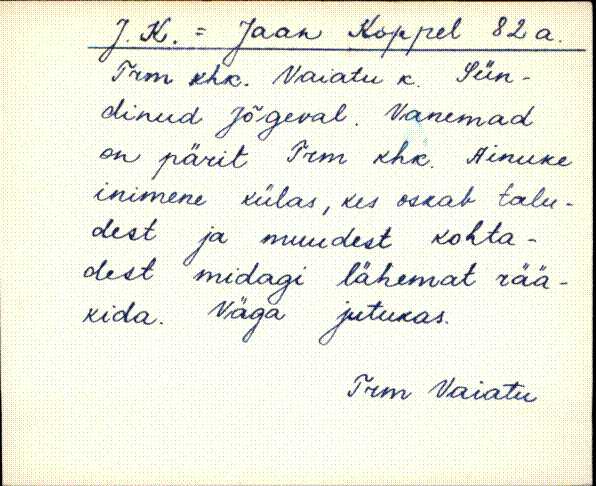 J. K. = Jaan Koppel 82 a.
Trm khk. Vaiatu k. Sün-
dinud Jõgeval. Vanemad
on pärit Trm khk. Ainuke
inimene külas, kes oskab talu-
dest ja muudest kohta-
dest midagi lähemat rää-
kida. Väga jutukas.
Trm Vaiatu